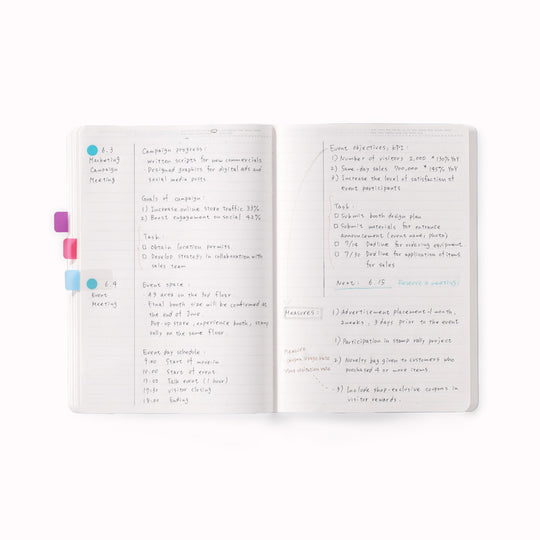 6.3
Marketing
Campaign
Meeting
Campaign progress:
· Written scripts for new commercials
· Designed graphics for digital ads and
social media posts
Goals of campaign:
1) Increase online store traffic 33%
2) Boost engagement on social 42%
Task:
Obtain location permits
Develop strategy in collaboration with
sales team
6.4
Event
Meeting
Event space:
· A3 area on the 3rd floor
· Final booth size will be confirmed at
the end of June.
· Pop-up store, experience booth, stamp
rally on the same floor.
Event day schedule:
9:00 Start of move-in
10:00 Start of event
13:00 Talk event (1 hour)
17:30 Visitor closing
18:00 Ending
Event objectives, KPI:
1) Number of visitors 2,000 * 130% YoY
2) Same-day sales 700,000 * 145% YoY
3) Increase the level of satisfaction of
event participants
Task:
Submit booth design plan
Submit materials for entrance
announcement (event name, photo)
7/14 Deadline for ordering equipment
7/30 Deadline for application of items
for sales
Next: 6.15 Reserve a meeting!
Measures:
1) Advertisement placement: 1 month,
2 weeks, 3 days prior to the event
1) Participation in stamp rally project
2) Novelty bag given to customers who
purchased 4 or more items.
Measure
coupon usage rate
visitation rate
3) Include shop-exclusive coupons in
visitor rewards.